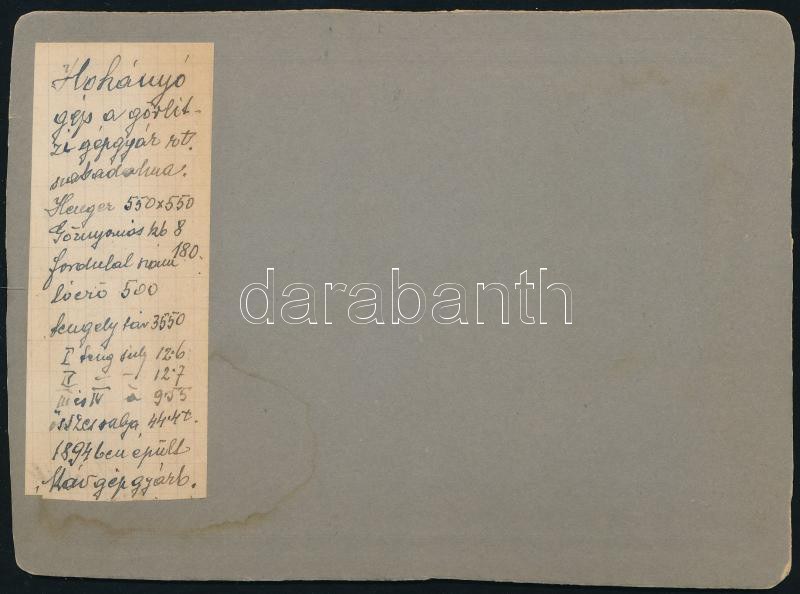 Hohányó
gép a görlit-
zi gépgyár rt.
szabadalma.
Henger 550x550
Gőznyomás kb 8
fordulat szám 180.
lóerő 500
tengely táv 3550
I teng súly 12.6
II " - " 12.7
III és IV à 9.55
összes súlya 44.4t.
1894ben épült
Máv gépgyárb.
darabanth